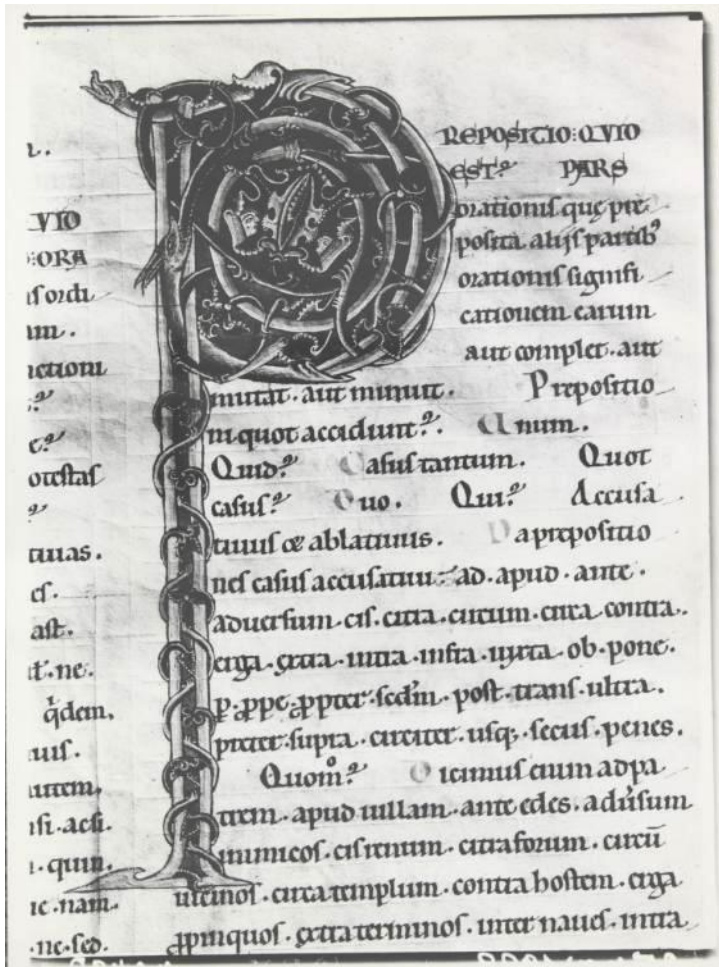 n.
VIO
:ORA
ſ ordi
um.
nctioni
:?
e?
oteſtaſ
?
tiuas.
eſ.
aſt.
t̄·ne.
q̇dem.
uiſ.
autem.
ſi·acſi.
·quin.
ne·nam·
·ne·ſed·
P
REPOSITIO:QVID
EST? PARS
orationiſ quę pre
poſita alijſ partib⁹
orationiſ ſignifi
cationem earum
aut complet·aut
mutat·aut minuit. Prepoſitio
ni quot accidunt? Unum.
Quid? Caſuſ tantum. Quot
caſuſ? Duo. Qui? Accuſa
tiuuſ & ablatiuuſ. Da prepoſitio
neſ caſuſ accuſatiui· ad·apud·ante·
aduerſum·ciſ·citra·circum·circa·contra·
erga·extra·intra·infra·iuxta·ob·pone·
ꝑ·ꝓpe·ꝓpter·ſcd̄m·poſt·tranſ·ultra·
preter·ſupra·circiter·uſq;·ſecuſ·peneſ.
Quom̊? Dicimuſ enim ad pa
trem·apud uillam·ante edeſ·aduſum
inimicoſ·ciſ renum·citra forum·circū
uicinoſ·circa templum·contra hoſtem·erga
ꝓpinquoſ·extra terminoſ·inter naueſ·intra